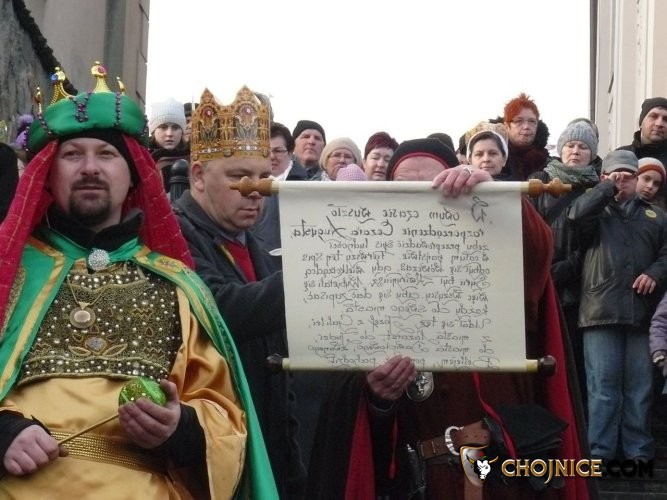 W owym czasie wyszło
rozporządzenie Cezara Augusta,
żeby przeprowadzić spis ludności
w całym państwie. Ten spis
odbył się wówczas gdy wielkorządcą
Syrii był Kwiryniusz. Wybierali się
więc wszyscy aby się dać zapisać,
każdy do swego miasta
Udał się też Józef z Galilei
z miasta Nazaret do Judei
do miasta Dawidowego zwanego
Betlejem, ponieważ pochodził
CHOJNICE.COM